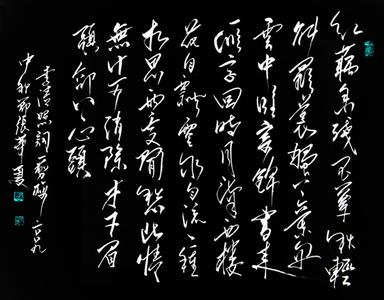 紅藕香殘玉簟秋輕
解羅裳獨上蘭舟
雲中誰寄錦書來
雁字回時月滿西樓
花自飄零水自流一種
相思兩處閒愁此情
無計可消除才下眉
頭卻上心頭
李清照詞一剪梅二〇〇九
中秋節張華夏